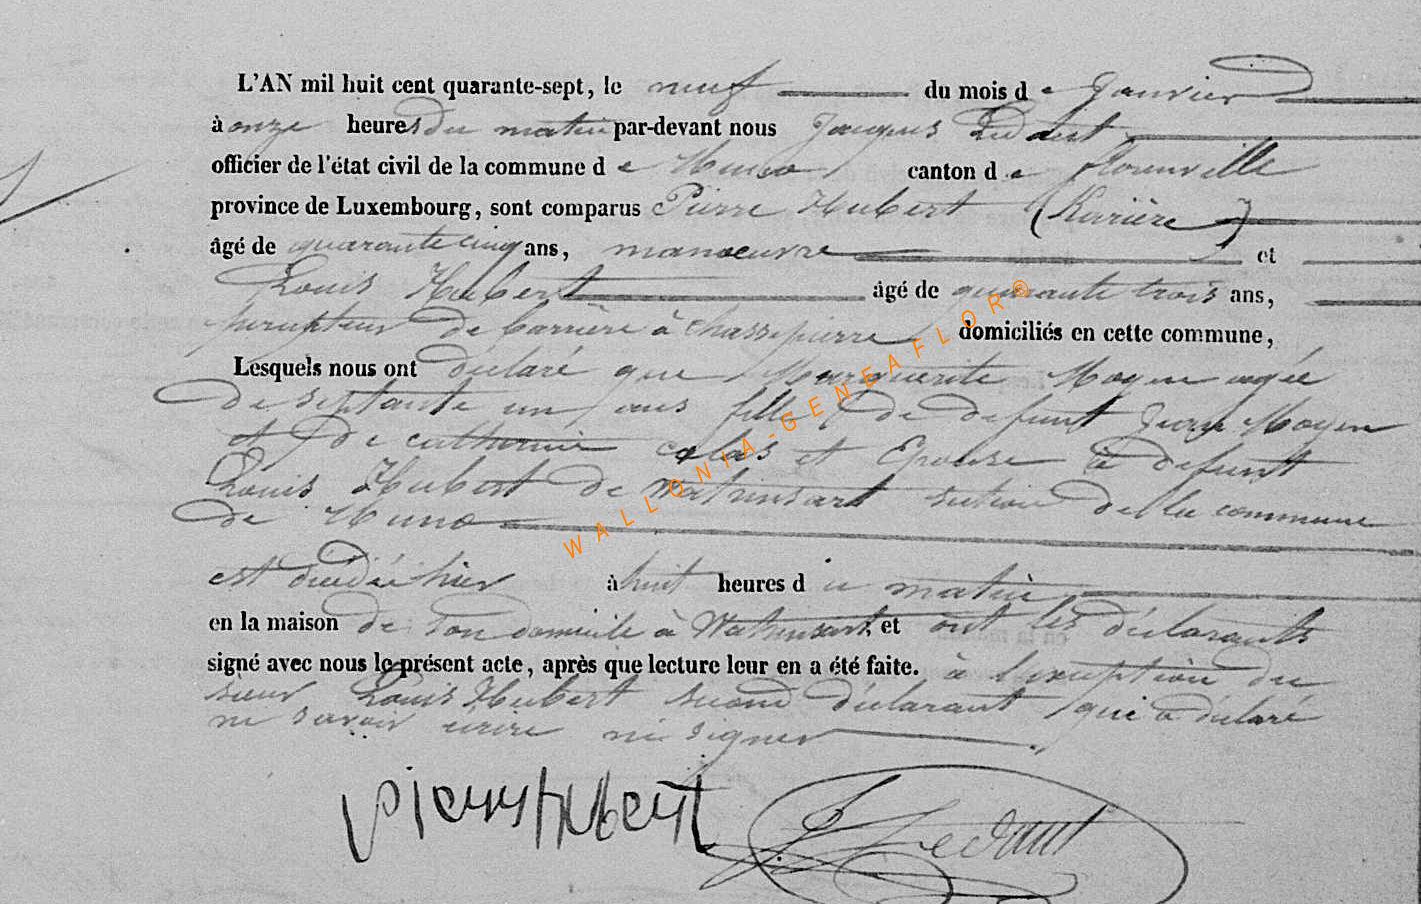 L'AN mil huit cent quarante-sept, le neuf du mois de Janvier
à onze heures du matin par-devant nous Jacques Ledant
officier de l'état civil de la commune de Muno canton de Florenville
province de Luxembourg, sont comparus Pierre Hubert (Karrière)
âgé de quarante cinq ans, manœuvre et
Louis Hubert âgé de quarante trois ans,
percepteur de barrière à Chassepierre domiciliés en cette commune,
Lesquels nous ont déclaré que Marguerite Moyen agée
de septante un ans fille de defunt Jean Moyen
et de catherine colas et Epouse à defunt
Louis Hubert de Watrinsart section della commune
de Muno
est décédée hier à huit heures du matin
en la maison de son domicile à Watrinsart, et ont les déclarants
signé avec nous le présent acte, après que lecture leur en a été faite. à l'exception du
sieur Louis Hubert second déclarant qui a déclaré
ne savoir écrire ni signer
Pierre Hubert J Ledant
WALLONIA-GENEAFLOR®